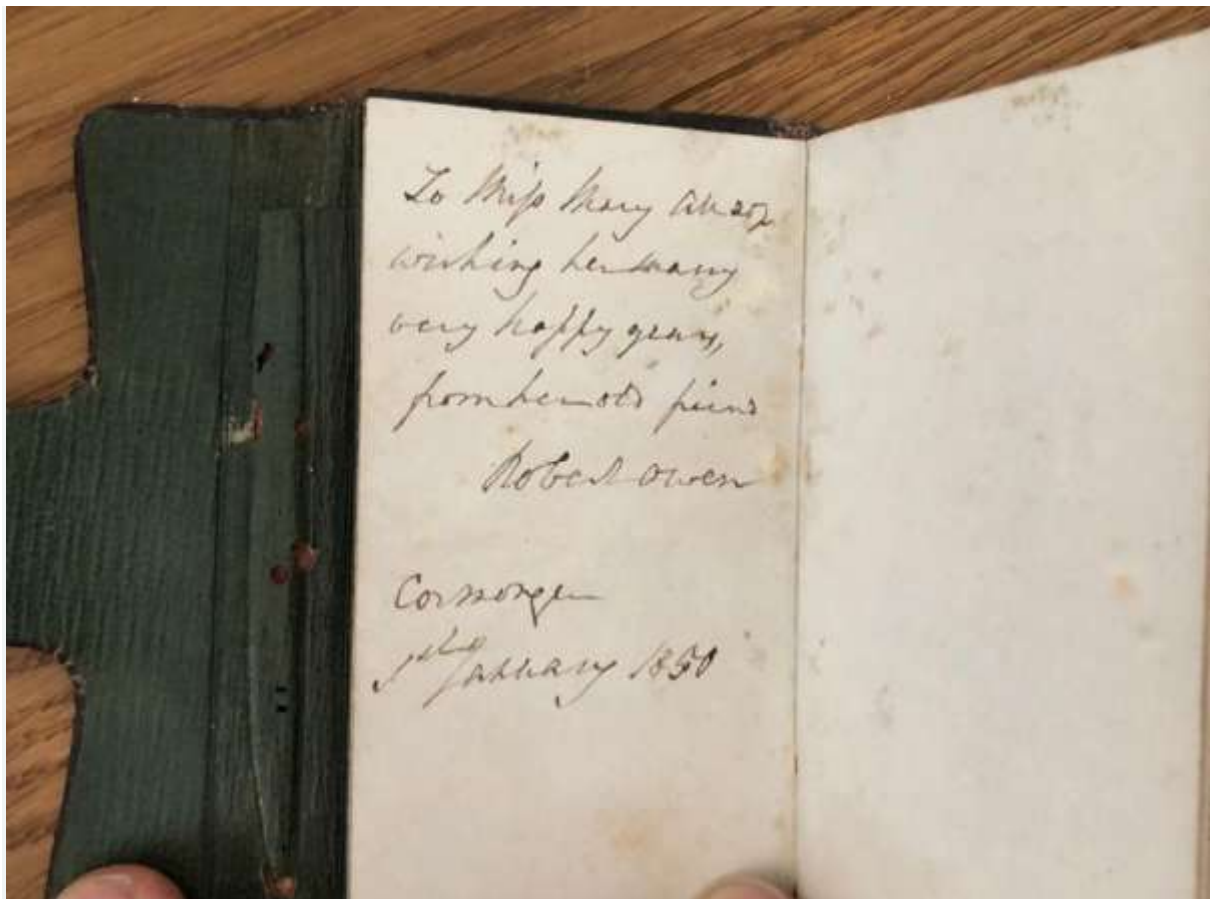 To Miss Mary
wishing her many
very happy years,
from her old friend
Robert Owen
1st January 1850